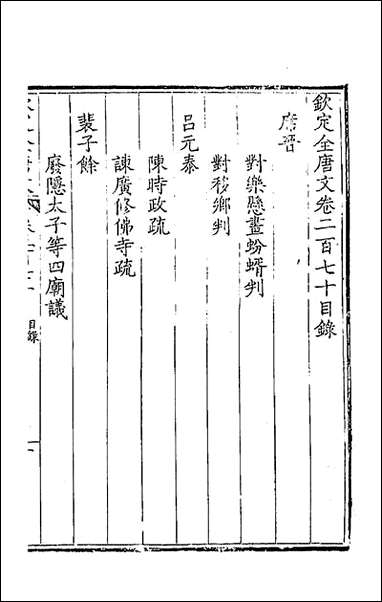 欽定全唐文卷二百七十目錄
席晋
對樂懸畫蚡蝑判
對移鄉判
呂元泰
陳時政疏
諫廣修佛寺疏
裴子餘
廢隱太子等四廟議
目錄
一